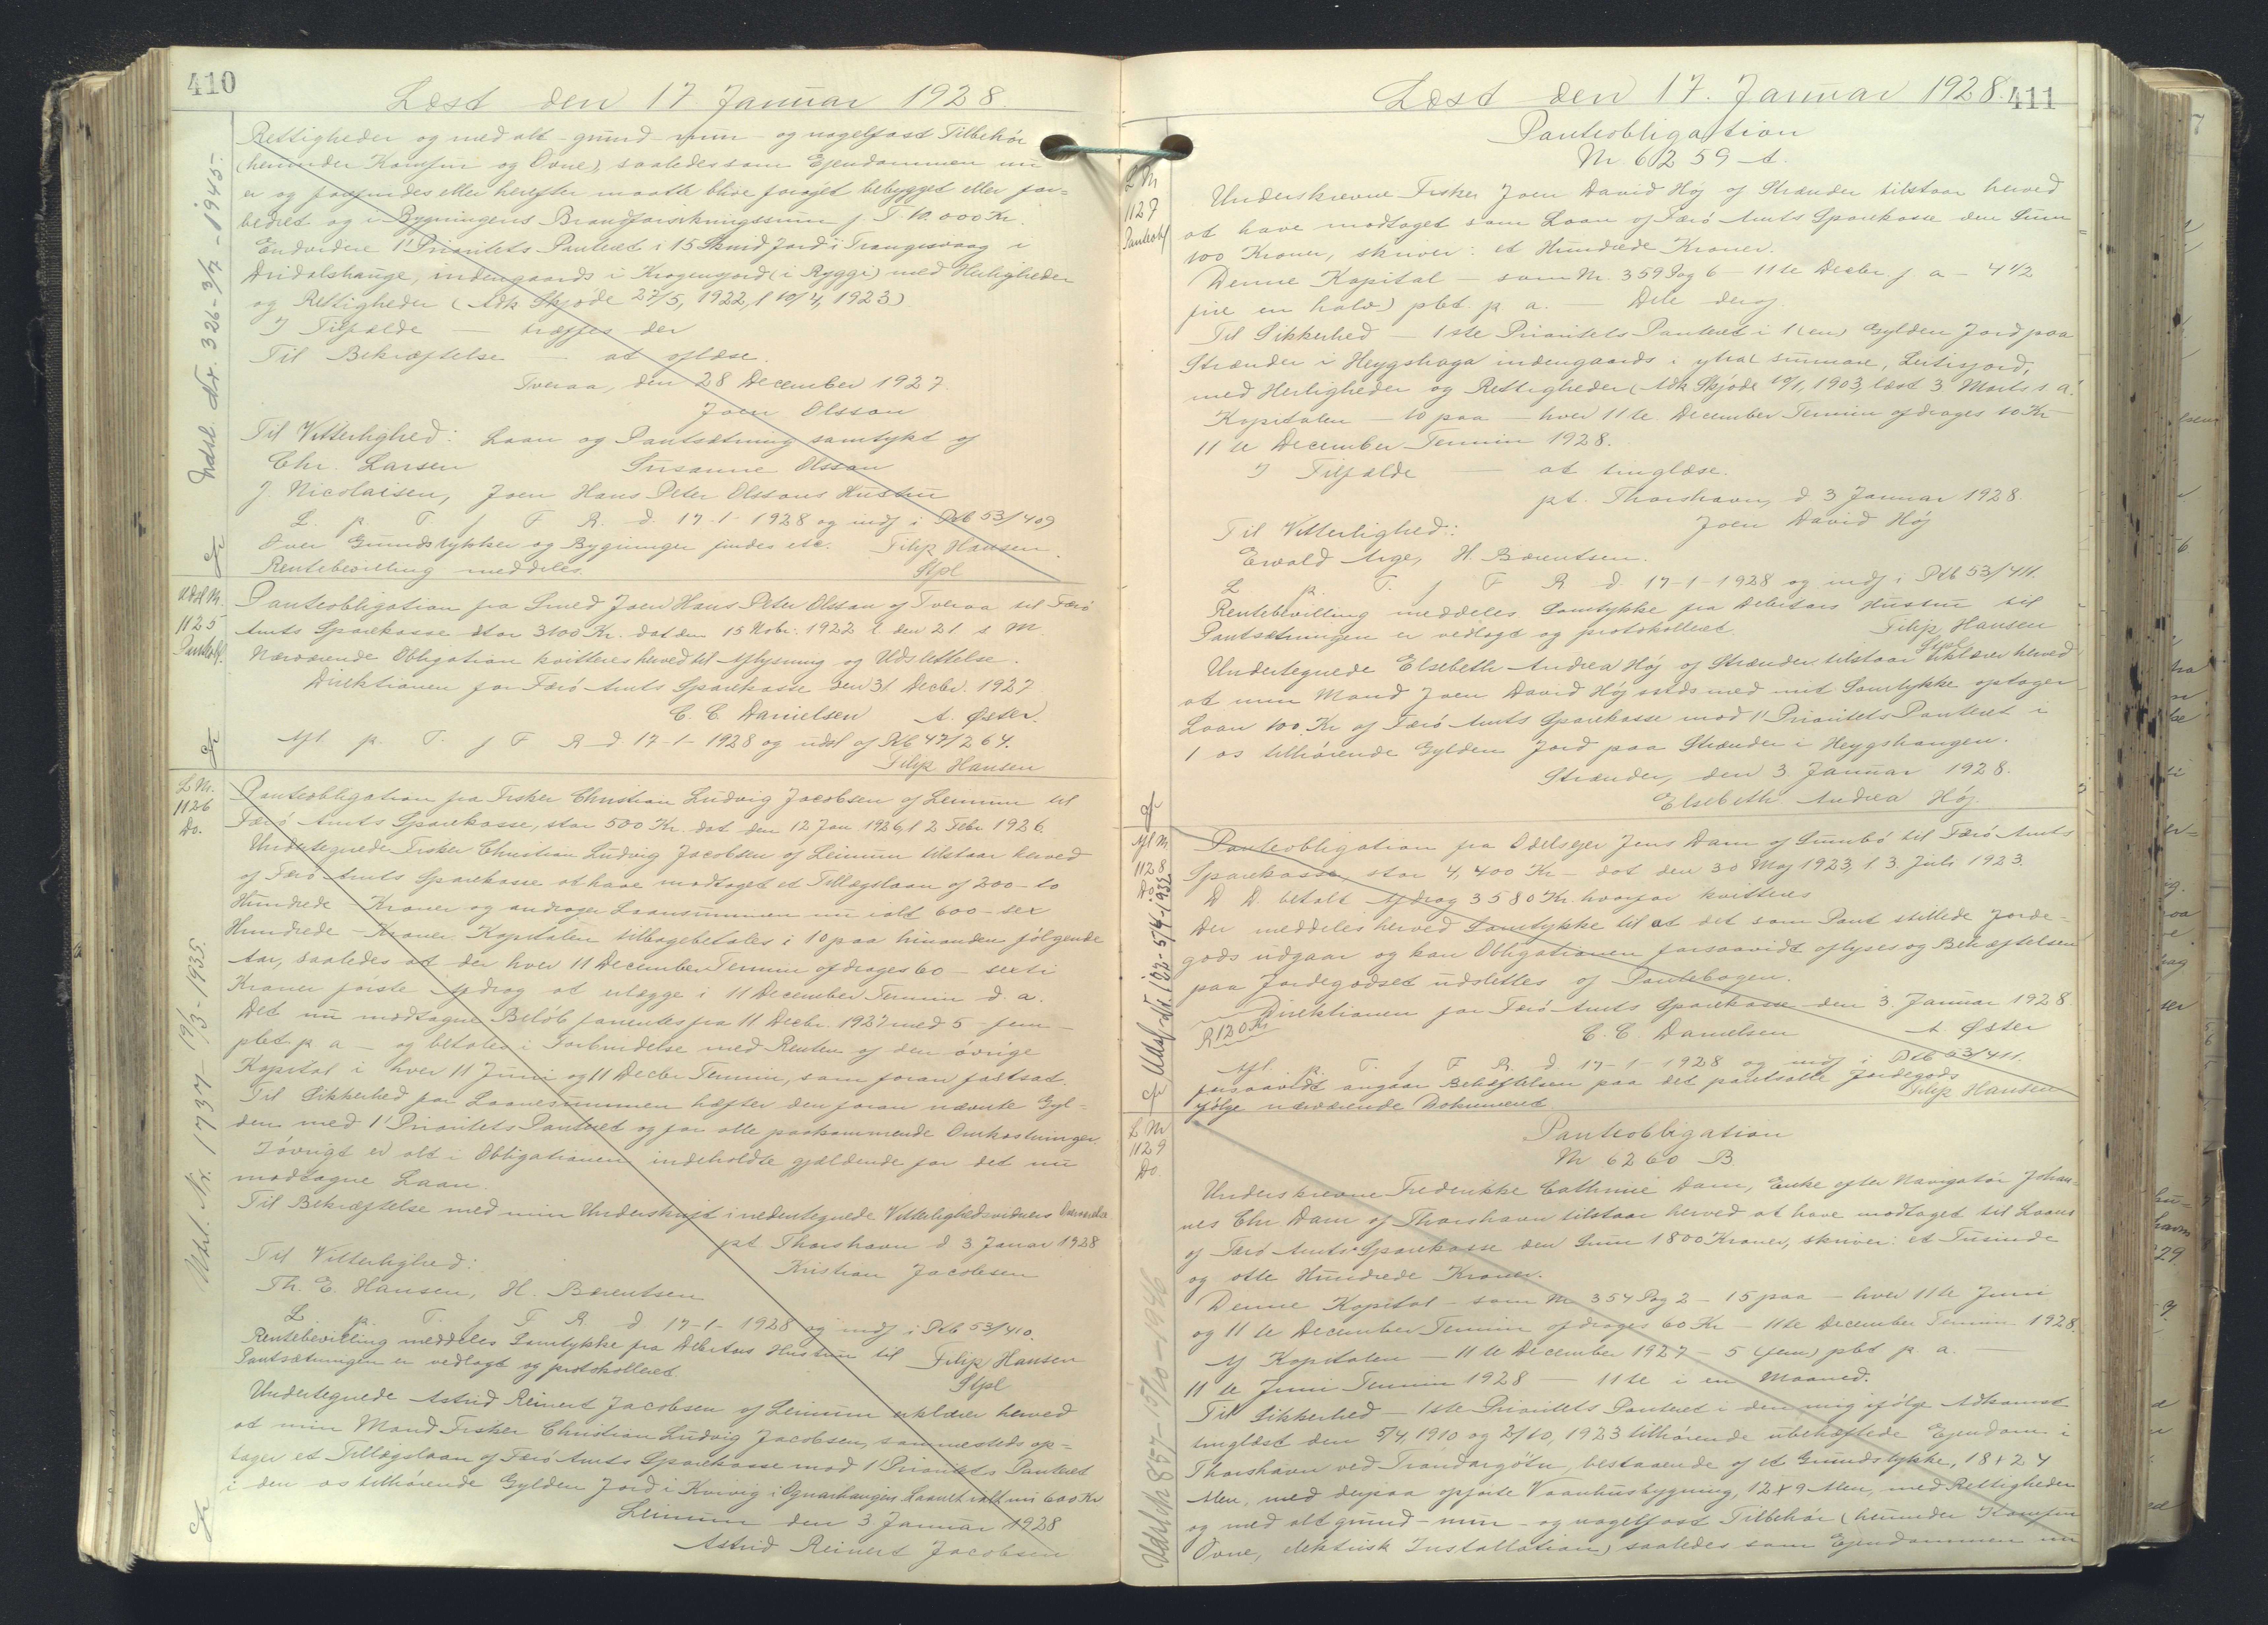 410
Læst den 17 Januar 1928.
Rettigheder og med alt - grund - mur - og nagelfast Tilbehör
(herunder Komfur og Ovne), saaledes som Ejendommen nu
er og forefindes eller herefter maatte blive forøget bebygget eller for-
bedret og i Bygningens Brandforsikringssum j. T. 10.000 Kr.
Endvidere 1' Prioritets Panteret i 15 Skind Jord i Trangesvaag i
indengaards i Krogenjord (i Ryggi) med Herligheder
og Rettigheder (Adk Skjøde 27/5, 1922, l 10/4, 1923)
I Tilfælde — træffes der
Til Bekræftelse — at aflæse.
Tveraa, den 28 December 1927.
Joen Olsson
Til Vitterlighed: Laan og Pantsætning samtykt af
Chr. Larsen Susanne Olsson
J. Nicolaisen, Joen Hans Peter Olssons Hustru
L. p. T. f F. R. d. 17-1-1928 og indf i Ptb 53/409
Over Grundstykker og Bygninger findes etc. Filip Hansen
Rentebevilling meddeles. Stpl
Udsl. Nr. 326-3/7-1945-
Udsl Nr.
1125
Panteobl.
Panteobligation fra Smed Joen Hans Peter Olsson af Tveraa til Færö
Amts Sparekasse stor 3100 Kr. dat den 15 Nobr. 1922 l den 21 s M.
Nærværende Obligation kvitteres herved til Aflysning og Udslettelse.
Direktionen for Færö Amts Sparekasse den 31 Decbr. 1927
C. C. Danielsen A. Øster.
Afl. p. T. f F R d 17-1-1928 og udsl af Ptb 47/264.
Filip Hansen
L Nr.
1126
Do.
Panteobligation fra Fisker Christian Ludvig Jacobsen af Leinum til
Færö Amts Sparekasse, stor 500 Kr. dat den 12 Jan 1926, l 2 Febr 1926.
Undertegnede Fisker Christian Ludvig Jacobsen af Leinum tilstaar herved
af Færö Amts Sparekasse at have modtaget et Tillægslaan af 200 - to
Hundrede - Kroner og andrager Laansummen nu ialt 600 - sex
Hundrede - Kroner. Kapitalen tilbagebetales i 10 paa hinanden fölgende
Aar, saaledes at der hver 11 December Termin afdrages 60 - sexti
Kroner förste Afdrag at erlægge i 11 December Termin d. a.
Det nu modtagne Belöb forrentes fra 11 Decbr. 1927 med 5 - fem -
pCt. p. a - og betales i Forbindelse med Renten af den övrige
Kapital i hver 11 Juni og 11 Decbr Termin, som foran fastsat.
Til Sikkerhed for Laanesummen hæfter den foran nævnte Gyl-
den med 1' Prioritets Panteret og for alle paakommende Omkostninger.
Iövrigt er alt i Obligationen indeholdte gjældende for det nu
modtagne Laan.
Til Bekræftelse med min Underskrift i nedentegnede Vitterlighedsvidners Overværelse
pt Thorshavn d 3 Januar 1928
Til Vitterlighed: Kristian Jacobsen
Th. E. Hansen, H. Bærentsen
L p. T. f F R. d 17-1-1928 og indf i Ptb 53/410.
Rentebevilling meddeles Samtykke fra Debitors Hustru til Filip Hansen
Pantsætningen er vedlagt og protokolleret. Stpl
Undertegnede Astrid Reinert Jacobsen af Leinum erklærer herved
at min Mand Fisker Christian Ludvig Jacobsen, sammesteds op-
tager et Tillægslaan af Færö Amts Sparekasse mod 1' Prioritets Panteret
i den os tilhörende Gylden Jord i Kvivig i Laanet ialt nu 600 Kr
Leinum den 3 Januar 1928
Astrid Reinert Jacobsen
Udsl. Nr. 1737 - 19/3-1935.
411
Læst den 17. Januar 1928.
Panteobligation
Nr 6259 A.
L Nr
1127
Panteobl
Underskrevne Fisker Joen David Höj af Strænder tilstaar herved
at have modtaget som Laan af Færö Amts Sparekasse den Sum
100 Kroner, skriver: et Hundrede Kroner.
Denne Kapital - som Nr. 359 Pag 6 - 11te Decbr f. a - 4 1/2
fire en halv) pCt. p. a. - Dele deraf.
Til Sikkerhed - 1ste Prioritets Panteret i 1 (en) Gylden Jord paa
Strænder i Heygshaga indengaards i ytra
med Herligheder og Rettigheder (Adk Skjöde 19/1, 1903, læst 3 Marts s. a.
Kapitalen - 10 paa - hver 11te December Termin afdrages 10 Kr -
11te December Termin 1928.
I Tilfælde — at tinglæse.
pt. Thorshavn, d. 3 Januar 1928.
Til Vitterlighed: Joen David Höj
Ewald Arge, H. Bærentsen.
L p. T. f F R d. 17-1-1928 og indf i Ptb 53/411.
Rentebevilling meddeles Samtykke fra Debitors Hustru til
Pantsætningen er vedlagt og protokolleret. Filip Hansen
Stpl
Undertegnede Elsebeth Andrea Höj af Strænder tilstaar erklærer herved
at min Mand Joen David Höj med mit Samtykke optager
Laan 100 Kr af Færö Amts Sparekasse mod 1' Prioritets Panteret i
1 os tilhörende Gylden Jord paa Strænder i Heygshangen.
Strænder, den 3 Januar 1928.
Elsebeth Andrea Höj.
Afl Nr
1128
Do.
Panteobligation fra Odelsejer Jens Dam af Sumbö til Færö Amts
Sparekasse, stor 4,400 Kr - dat den 30 Maj 1923, l. 3. Juli 1923.
D. D. betalt Afdrag 3580 Kr. hvorfor kvitteres
Der meddeles herved Samtykke til at det som Pant stillede Jorde-
gods udgaar og kan Obligationen forsaavidt aflyses og Behæftelsen
paa Jordegodset udslettes af Pantebogen.
Direktionen for Færö Amts Sparekasse den 3. Januar 1928.
R 120 Kr C. C. Danielsen A. Øster
Afl. p. T. f F R d 17-1-1928 og indf i Ptb 53/411.
forsaavidt angaar Behæftelsen paa det pantsatte Jordegods
ifölge nærværende Dokument. Filip Hansen
Udsl. Nr. 102-5/4-1932
L Nr
1129
Do
Panteobligation
Nr 6260 B
Underskrevne Frederikke Cathrine Dam, Enke efter Navigatör Johan-
nes Chr Dam af Thorshavn tilstaar herved at have modtaget til Laans
af Færö Amts Sparekasse den Sum 1800 Kroner, skriver: et Tusinde
og otte Hundrede Kroner.
Denne Kapital - som Nr 354 Pag 2 - 15 paa - hver 11te Juni
og 11te December Termin afdrages 60 Kr - 11te December Termin 1928.
Af Kapitalen - 11te December 1927 - 5 (fem) pCt p. a. -
11te Juni Termin 1928 - 11te i en Maaned.
Til Sikkerhed - 1ste Prioritets Panteret i den mig ifölge Adkomst
tinglæst den 5/4, 1910 og 2/10, 1923 tilhörende ubehæftede Ejendom i
Thorshavn ved Tróndargötu, bestaaende af et Grundstykke, 18 x 24
Alen, med derpaa opförte Vaanhusbygning, 12 x 9 Alen, med Rettigheder
og med alt grund - mur - og nagelfast Tilbehör (herunder Komfur
Ovne, elektrisk Installation) saaledes som Ejendommen nu
Udsl. Nr 857-15/10-1946